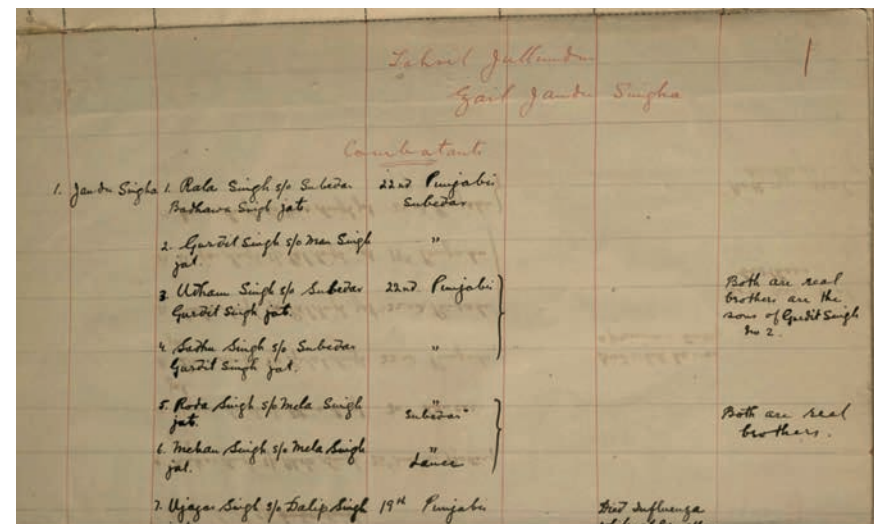 1
Tahsil Jullundur
Zail Jandu Singha
Combatants
1. Jandu Singha 1. Rala Singh s/o Subedar 22nd Punjabis
Badhawa Singh jat. Subedar
2. Gurdit Singh s/o Man Singh "
jat.
3. Udham Singh s/o Subedar 22nd Punjabis Both are real
Gurdit Singh jat. brothers are the
sons of Gurdit Singh
No 2.
4. Sadhu Singh s/o Subedar "
Gurdit Singh jat.
5. Roda Singh s/o Mela Singh " Both are real
jat. Subedar brothers.
6. Mehan Singh s/o Mela Singh "
jat. Lance
7. Ujagar Singh s/o Dalip Singh 19th Punjabis Died Influenza